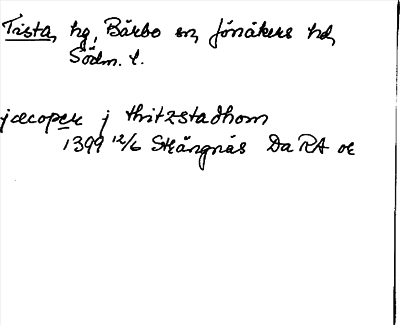 Tista, hg, Bärbo sn, Jönåkers hd,
Södm. l.
jacoper j thritzstadhom
1399 12/6 Strängnäs Da RA or